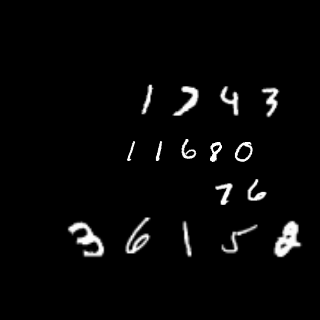 1743
11680
76
36152